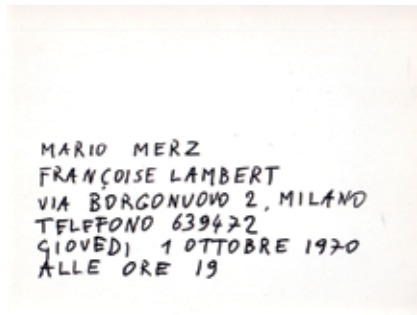 MARIO MERZ
FRANÇOISE LAMBERT
VIA BORGONUOVO 2, MILANO
TELEFONO 639472
GIOVEDI 1 OTTOBRE 1970
ALLE ORE 19